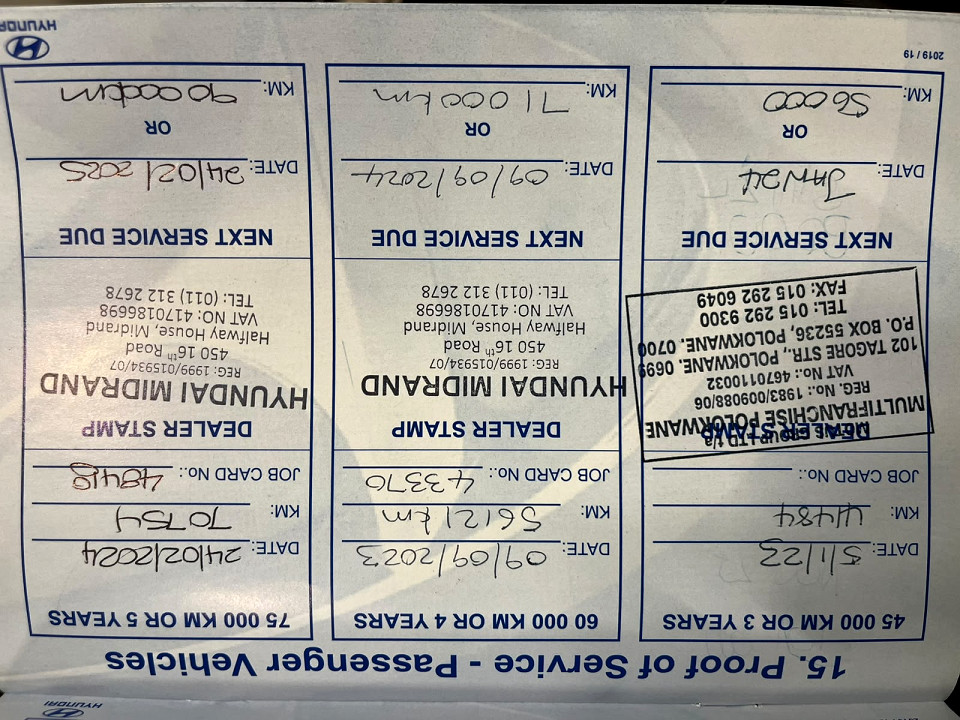 HYUNDAI
15. Proof of Service - Passenger Vehicles
45 000 KM OR 3 YEARS
DATE: 5/1/23
KM: 41484
JOB CARD No.:
DEALER STAMP
GROUP LTD t/a
MULTIFRANCHISE POLOKWANE
REG. No.: 1983/009088/06
VAT No.: 4670110032
102 TAGORE STR., POLOKWANE. 0699
P.O. BOX 55236, POLOKWANE. 0700
TEL: 015 292 9300
FAX: 015 292 6049
NEXT SERVICE DUE
DATE: JAN 24
OR
KM: 56000
60 000 KM OR 4 YEARS
DATE: 09/09/2023
KM: 56121 km
JOB CARD No.: 43370
DEALER STAMP
HYUNDAI MIDRAND
REG: 1999/015934/07
450 16th Road
Halfway House, Midrand
VAT NO: 4170186698
TEL: (011) 312 2678
NEXT SERVICE DUE
DATE: 09/09/2024
OR
KM: 71 000 km
75 000 KM OR 5 YEARS
DATE: 24/02/2024
KM: 70754
JOB CARD No.:
DEALER STAMP
HYUNDAI MIDRAND
REG: 1999/015934/07
450 16th Road
Halfway House, Midrand
VAT NO: 4170186698
TEL: (011) 312 2678
NEXT SERVICE DUE
DATE: 24/02/2025
OR
KM: 90000km
2019 / 19
HYUNDAI